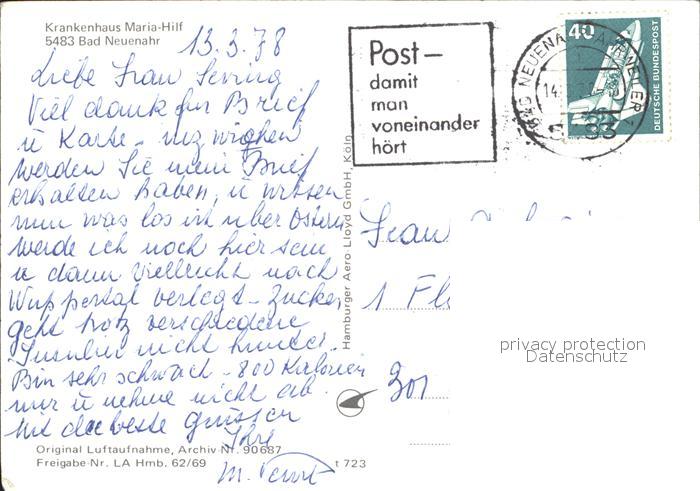 Krankenhaus Maria-Hilf
5483 Bad Neuenahr
13.3.78
Liebe Frau
Viel dank für Brief
u Karte - inzwischen
werden Sie mein Brief
erhalten haben, u wissen
nun was los ist über Ostern
werde ich noch hier sein
u dann vielleicht nach
Wuppertal verlegt - Zucker
geht trotz verschiedene
Insulin nicht hunter.
Bin sehr schwach - 800 Kalorien
nur u nehme nicht ab.
Mit die beste grüssen
Ihre
M.
Original Luftaufnahme, Archiv-Nr. 90687
Freigabe-Nr. LA Hmb. 62/69
t 723
Hamburger Aero-Lloyd GmbH, Köln
Post –
damit
man
voneinander
hört
BAD NEUENAHR-AHRWEILER
14.
5483
40
DEUTSCHE BUNDESPOST
Frau
1
privacy protection
Datenschutz